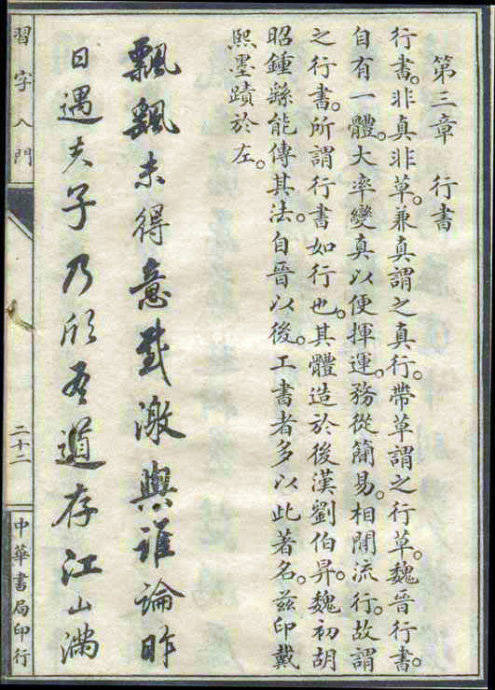 第三章 行書
行書。非真非草。兼真謂之真行。帶草謂之行草。魏晉行書。
自有一體。大率變真以便揮運。務從簡易。相間流行。故謂
之行書。所謂行書如行也。其體造於後漢劉伯昇。魏初胡
昭鍾繇能傳其法。自晉以後。工書者多以此著名。茲印戴
熙墨蹟於左。
飄飄未得意感激與誰論昨
日遇夫子乃欣吾道存江山滿
習字入門
二十二
中華書局印行